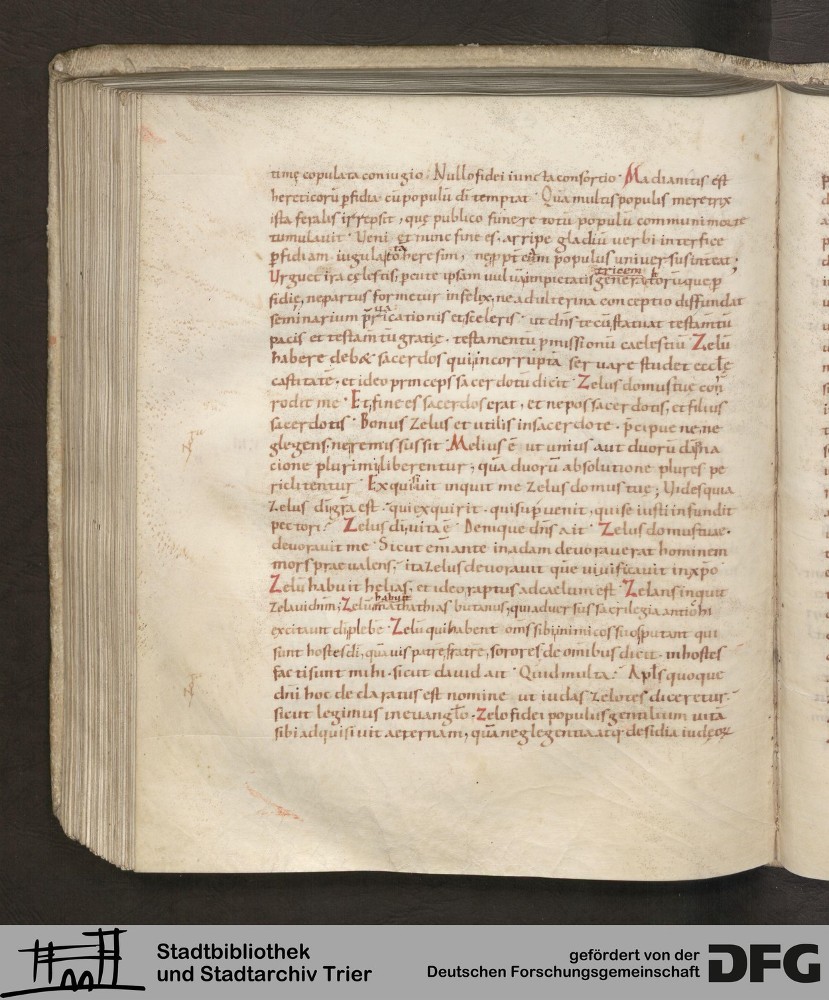 timę copulata coniugio. Nullo fidei iuncta consortio. Madianitis est
hereticorū ꝑfidia cū populū dī temptat. Quā multis populis meretrix
ista feralis irrepsit, quę publico funere totū populū communi morte
tumulauit. Ueni et nunc finees. arripe gladiū uerbi interfice
ꝑfidiam. iugula heresim, populus uniuersus intereat;
Urguet ira cęlestis, ꝑcute ipsam uuluā impietatis
fidię, ne partus formetur infelix, ne adulterina conceptio diffundat
seminarium et sceleris. ut dn̄s tecū statuat testam̄tū
pacis et testam̄tū gratię. testamentū ꝓmissionū caelestiū. Zelū
habere debet sacerdos qui incorruptā seruare studet eccłę
castitatē. et ideo princeps sacerdotū dicit. Zelus domus tuę com̄
rodit me. Et finees sacerdos erat, et nepos sacerdotis, et filius
sacerdotis. Bonus zelus et utilis in sacerdote. p̄cipue ne, ne
glegens, neue remissus sit. Melius ē ut unius aut duorū dāna
cione plurimi liberentur, quā duorū absolutione plures pe
riclitentur. Exquisiuit inquit me zelus domus tuę; Uides quia
zelus dī gr̄a est. qui exquirit. qui sup̄uenit, qui se iusti infundit
pectori. Zelus dī, uita ē. Denique dn̄s ait. Zelus domus tuae.
deuorauit me. Sicut enī ante in adam deuorauerat hominem
mors praeualens, ita zelus deuorauit quē uiuificauit in xp̄o
Zelū habuit helias, et ideo raptus ad caelum est. Zelans inquit
zelaui dn̄m; Zelū habuit mathathias qui aduersus sacrilegia antiochi
excitauit dī plebē. Zelū qui habent om̄s sibi inimicos suos putant qui
sunt hostes dī, quāuis patrē, fratrē, sorores de om̄ibus dicit. inhostes
facti sunt mihi. sicut dauid ait. Quid multa. Apłs quoque
dn̄i hoc declaratus est nomine ut iudas zelotes diceretur.
sicut legimus in euangło. Zelo fidei populus gentilium uitā
sibi adquisiuit aeternam, quā neglegentia atq; desidia iudęoꝝ
Stadtbibliothek
und Stadtarchiv Trier
gefördert von der
Deutschen Forschungsgemeinschaft
DFG